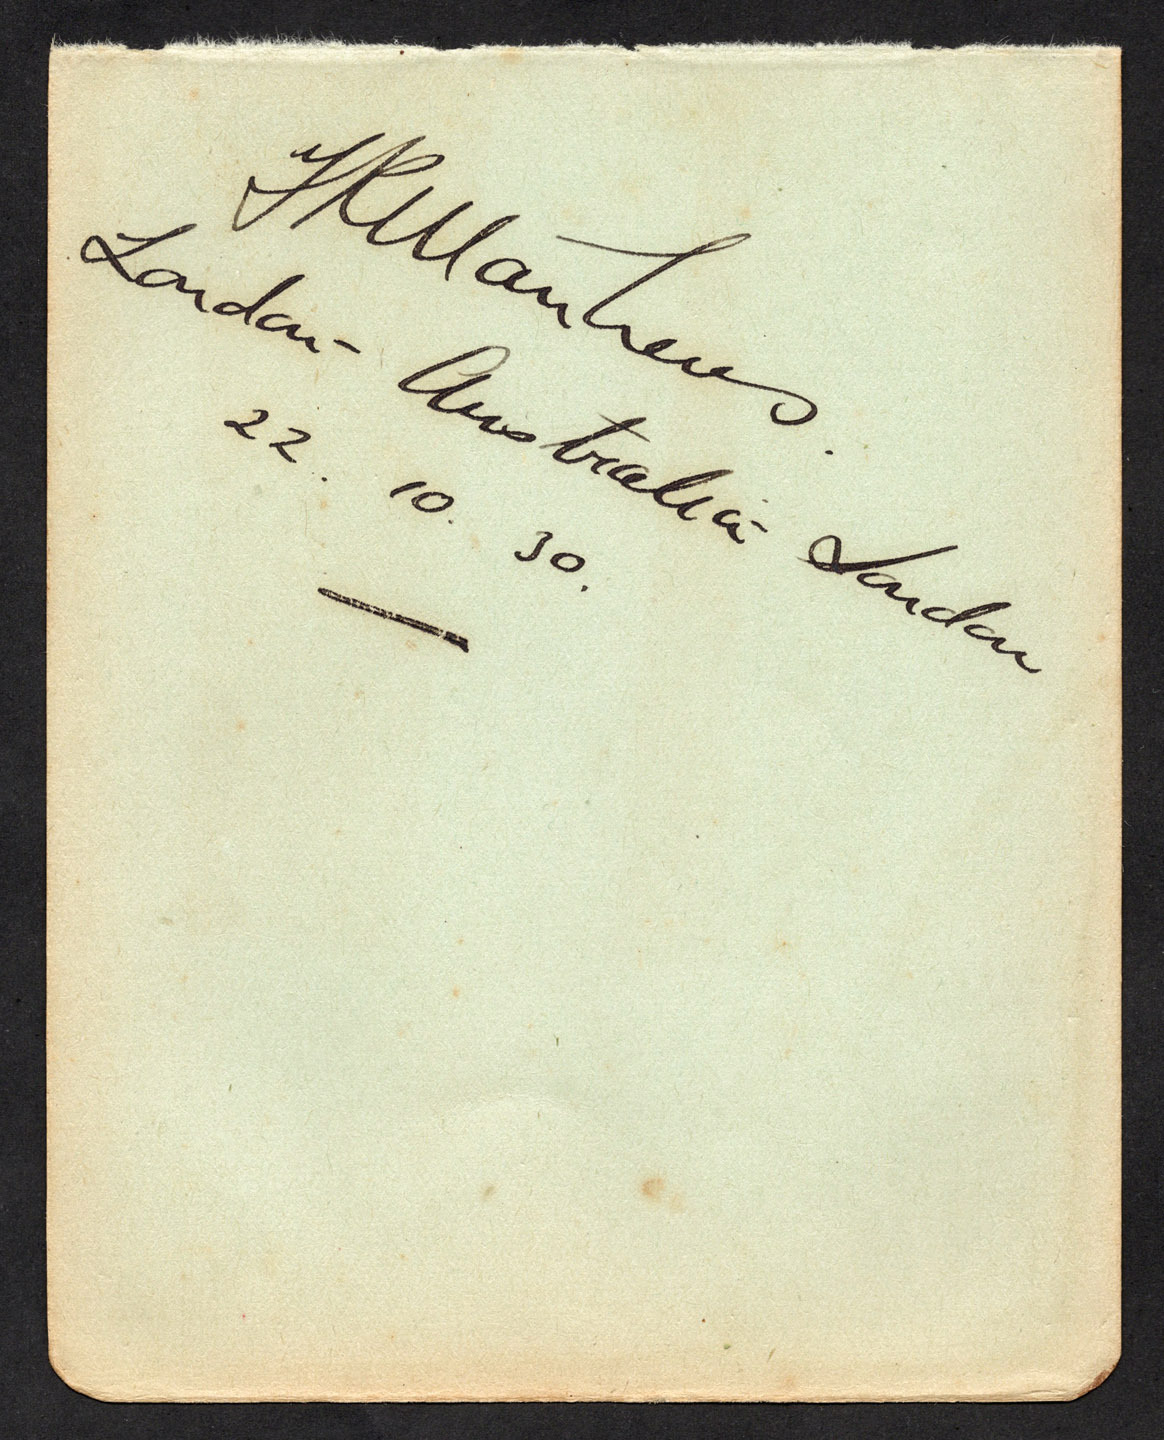 FRMatthews.
London - Australia - London
22. 10. 30.